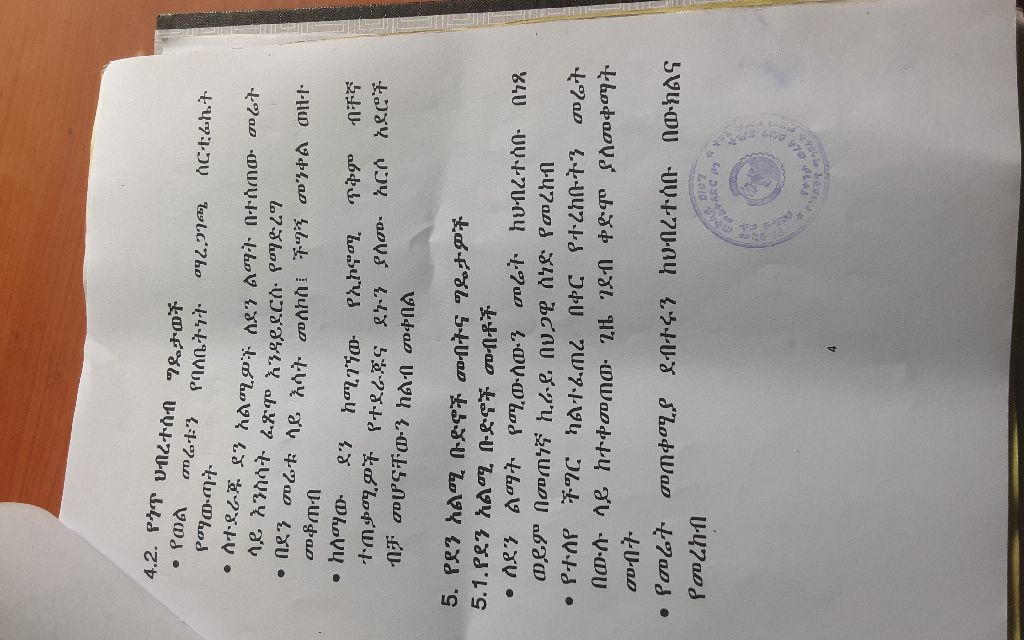 4.2. የጎጥ ህብረተሰብ ግዴታወች
• የወል መሬቱን የባለቤትነት ማረጋገጫ ሰርቲፊኬት
የማውጣት
• ለተደራጁ ደን አልሚዎች ለደን ልማት በተሰጠው መሬት
ላይ እንስሳት ፈጽሞ እንዳይደርሱ የማድረግ
• በደን መሬቱ ላይ እሳት መለኮስ፤ ችግኝ መንቀል ወዘተ
መቆጠብ
• ከለማው ደን ከሚገኘው የኢኮኖሚ ጥቅም ብቸኛ
ተጠቃሚዎች የተደራጁና ደኑን ያለሙ እርስ አደሮች
ብቻ መሆናቸውን ከልብ መቀበል
5. የደን አልሚ ቡድኖች መብትና ግዴታዎች
5.1.የደን አልሚ ቡድኖች መብዶች
• ለደን ልማት የሚውለውን መሬት ከህብረተሰቡ በነጻ
ወይም በመጠነኛ ኪራይ በህጋዊ ሰነድ የመረከብ
• የተለየ ችግር ካልተፈጠረ በቀር የተረከቡትን መሬት
በውሉ ላይ ከተቀመጠው ጊዜ ገደብ ቀድሞ ያለመቀማት
መብት
• የመሬት መጠቀሚያ ደብተሩን ከህብረተሰቡ በውክልና
የመረከብ
4